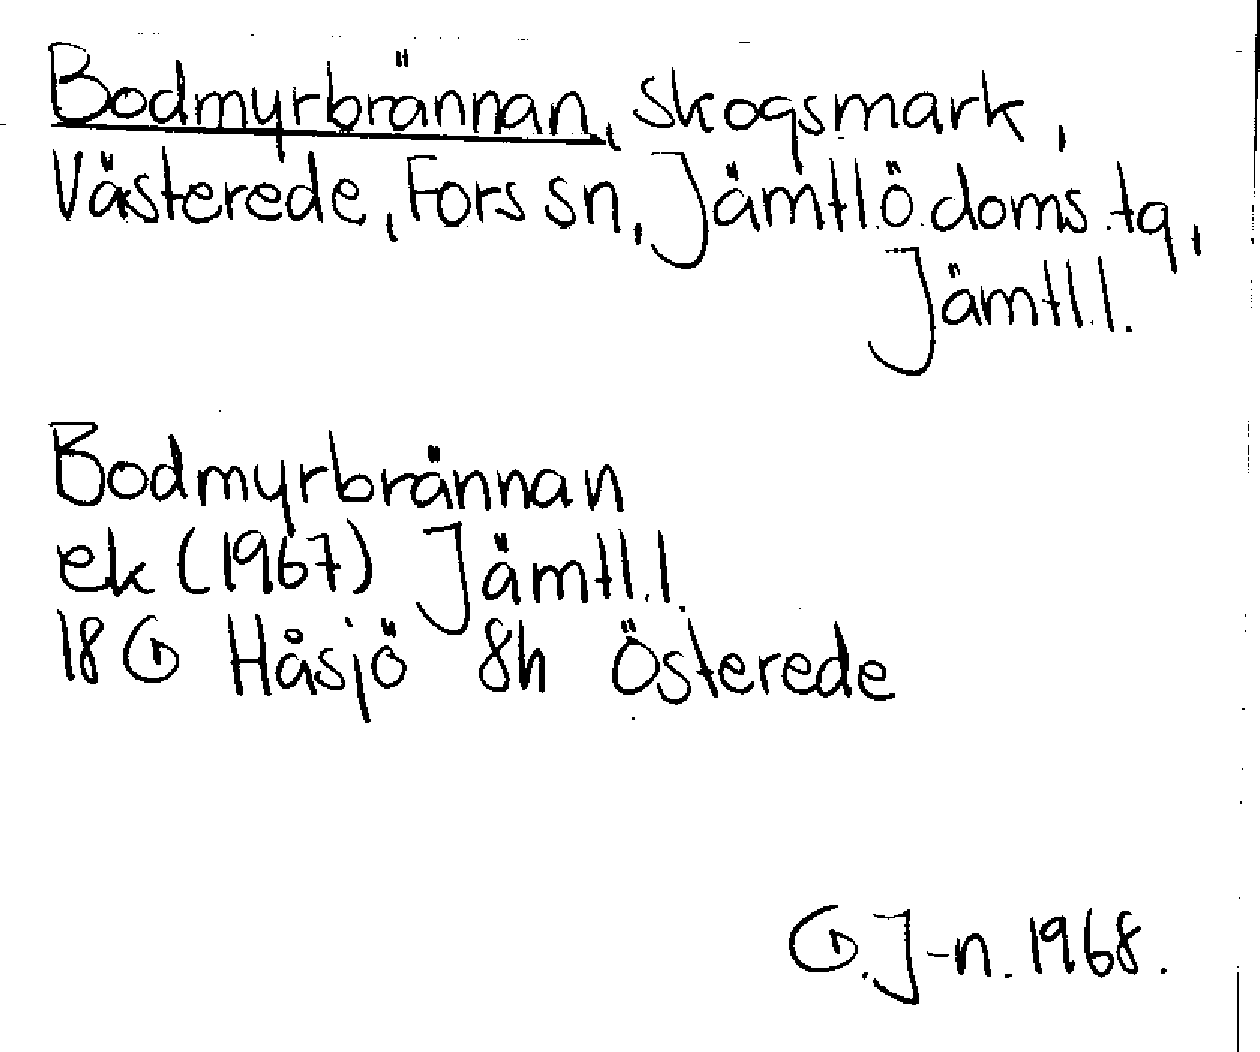 Bodmyrbrännan, skogsmark,
Västerede, Fors sn, Jämtl.ö.doms.tg,
Jämtl.l.
Bodmyrbrännan
ek (1967) Jämtl.l.
18G Håsjö 8h Österede
G.J-n. 1968.